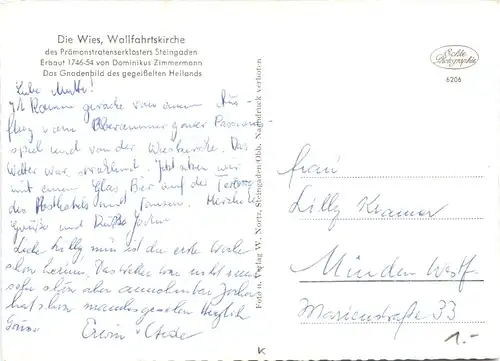 Die Wies, Wallfahrtskirche
des Prämonstratenserklosters Steingaden
Erbaut 1746-54 von Dominikus Zimmermann
Das Gnadenbild des gegeißelten Heilands
Liebe Mutti!
Komme gerade von einem Aus-
flug vom Oberammergauer Passions-
spiel und von der Wieskirche. Das
Wetter war strahlend. Jetzt sitzen wir
mit einem Glas Bier auf der
des Posthotels und Herzliche
Grüße und Küsse
Liebe Lilly nun ist die erste Woche
schon herum. Das Wetter war nicht
sehr schön aber annehmbar
hat schon manches gesehen Herzlich
Grüße Erwin
Foto u. Verlag W. Nortz, Steingaden/Obb. Nachdruck verboten
Echte
Photographie
6206
Frau
Lilly Kramer
Minden Westf.
Marienstraße 33
1.-
K